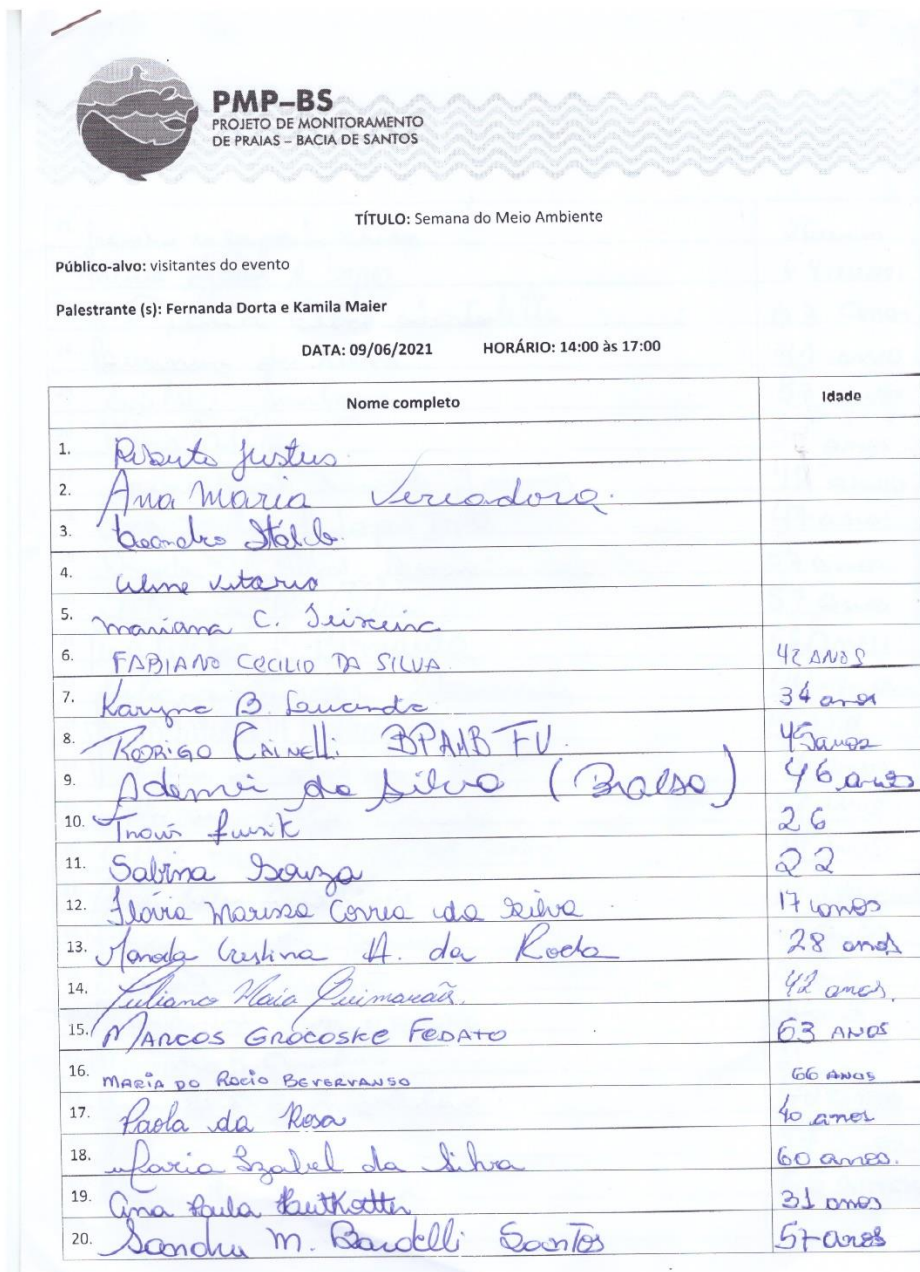 PMP-BS
PROJETO DE MONITORAMENTO
DE PRAIAS – BACIA DE SANTOS
TÍTULO: Semana do Meio Ambiente
Público-alvo: visitantes do evento
Palestrante (s): Fernanda Dorta e Kamila Maier
DATA: 09/06/2021 HORÁRIO: 14:00 às 17:00
Nome completo Idade
1. Justus
2. Ana Maria Vereadora.
3.
4. Vitario
5. Mariana C. Teixeira
6. FABIANO CECILIO DA SILVA. 42 ANOS
7. Karyne B 34 anos
8. RODRIGO CAINELLI BPAMB FV. 45 anos
9. Ademir da Silva 46 anos
10. 26
11. Sabrina Souza 22
12. Flávia Correa da Silva 17 anos
13. Cristina A. da 28 anos
14. Juliano Maia Guimarães. 42 anos.
15. MARCOS GROCOSKE FEDATO 63 ANOS
16. MARIA DO ROCIO BEVERVANSO 66 ANOS
17. Paola da Rosa 40 anos
18. Maria Izabel da Silva 60 anos.
19. Ana Paula 31 anos
20. M. Bardelli Santos 57 anos